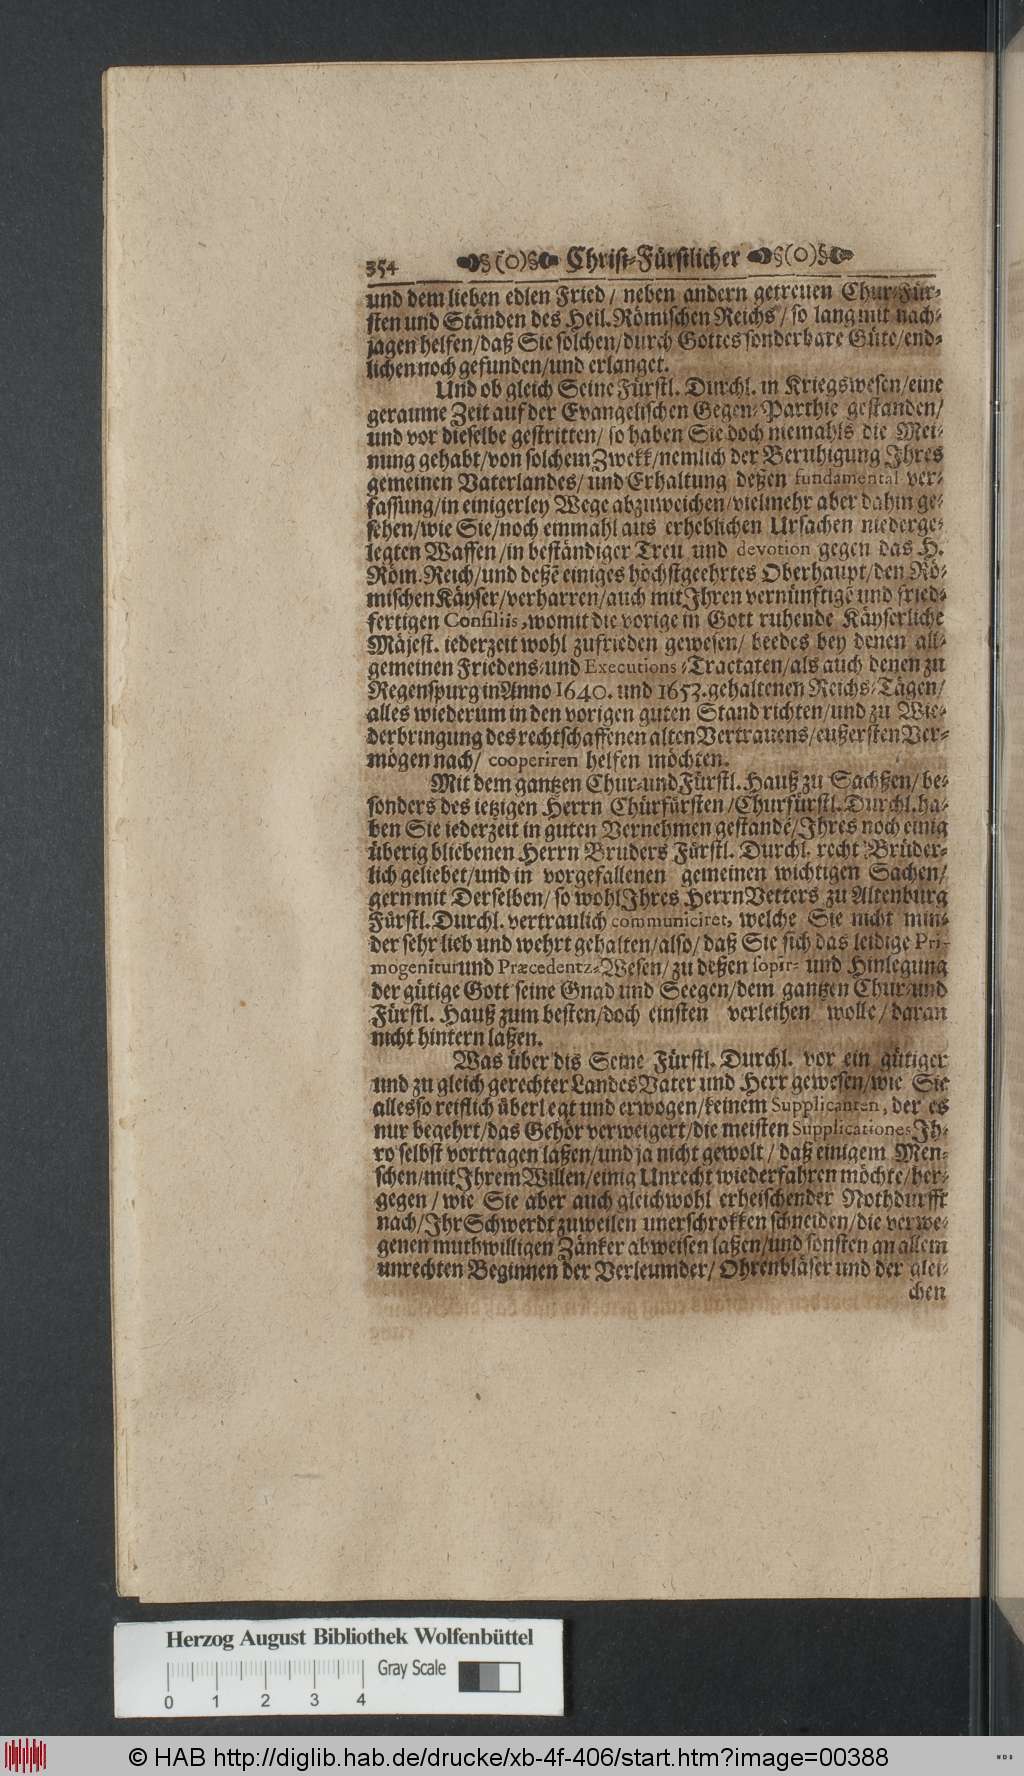 354 §(o)§ Christ-Fürstlicher §(o)§
und dem lieben edlen Fried / neben andern getreuen Chur-Für-
sten und Ständen des Heil. Römischen Reichs / so lang mit nach-
jagen helfen/daß Sie solchen/durch Gottes sonderbare Güte/end-
lichen noch gefunden/und erlanget.
Und ob gleich Seine Fürstl. Durchl. in Kriegswesen/eine
geraume Zeit auf der Evangelischen Gegen-Parthie gestanden/
und vor dieselbe gestritten/ so haben Sie doch niemahls die Mei-
nung gehabt/von solchem Zwekk/nemlich der Beruhigung Ihres
gemeinen Vaterlandes/ und Erhaltung deßen fundamental ver-
fassung/in einigerley Wege abzuweichen/vielmehr aber dahin ge-
sehen/wie Sie/noch einmahl aus erheblichen Ursachen niederge-
legten Waffen/in beständiger Treu und devotion gegen das H.
Röm. Reich/und deßē einiges höchstgeehrtes Oberhaupt/den Rö-
mischen Käyser/verharren/auch mit Ihren vernünftigē und fried-
fertigen Consiliis, womit die vorige in Gott ruhende Käyserliche
Mäjest. iederzeit wohl zufrieden gewesen/ beedes bey denen all-
gemeinen Friedens-und Executions-Tractaten/als auch denen zu
Regenspurg in Anno 1640. und 1653. gehaltenen Reichs-Tägen/
alles wiederum in den vorigen guten Stand richten/und zu Wie-
derbringung des rechtschaffenen alten Vertrauens/eußersten Ver-
mögen nach/ cooperiren helfen möchten.
Mit dem gantzen Chur-und Fürstl. Hauß zu Sachßen/be-
sonders des ietzigen Herrn Chürfürsten/Churfürstl. Durchl. ha-
ben Sie iederzeit in guten Vernehmen gestandē/Ihres noch einig
überig bliebenen Herrn Bruders Fürstl. Durchl. recht Brüder-
lich geliebet/und in vorgefallenen gemeinen wichtigen Sachen/
gern mit Derselben/ so wohl Ihres Herrn Vetters zu Altenburg
Fürstl. Durchl. vertraulich communiciret, welche Sie nicht min-
der sehr lieb und wehrt gehalten/also/daß Sie sich das leidige Pri-
mogenitur und Præcedentz-Wesen/zu deßen sopir- und Hinlegung
der gütige Gott seine Gnad und Seegen/dem gantzen Chur-und
Fürstl. Hauß zum besten/doch einsten verleihen wolle/daran
nicht hintern laßen.
Was über dis Seine Fürstl. Durchl. vor ein gütiger
und zu gleich gerechter Landes Vater und Herr gewesen/wie Sie
alles so reiflich überlegt und erwogen/keinem Supplicanten, der es
nur begehrt/das Gehör verweigert/die meisten Supplicationes Ih-
ro selbst vortragen laßen/und ja nicht gewolt/ daß einigem Men-
schen/mit Ihrem Willen/einig Unrecht wiederfahren möchte/her-
gegen/ wie Sie aber auch gleichwohl erheischender Nothdurfft
nach/Ihr Schwerdt zuweilen unerschrokken schneiden/die verwe-
genen muthwilligen Zänker abweisen laßen/und sonsten an allem
unrechten Beginnen der Verleumder/ Ohrenbläser und der glei-
chen
Herzog August Bibliothek Wolfenbüttel
Gray Scale
0 1 2 3 4
© HAB http://diglib.hab.de/drucke/xb-4f-406/start.htm?image=00388